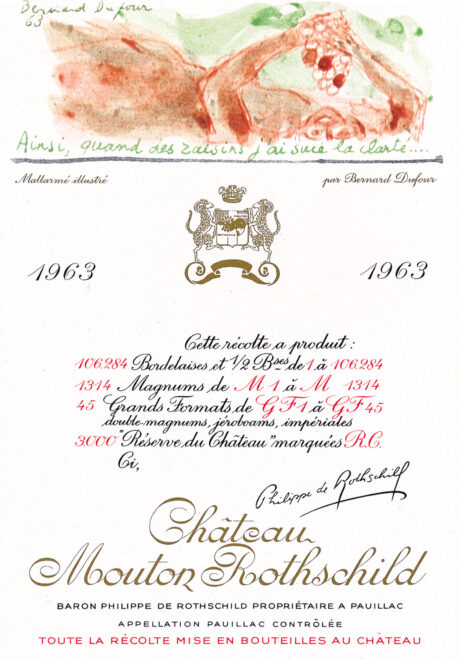 Bernard Dufour
63
Ainsi, quand des raisins j'ai sucé la clarté....
Mallarmé illustré par Bernard Dufour
1963 1963
Cette récolte a produit :
106.284 Bordelaises et 1/2 Bses de 1 à 106.284
1314 Magnums de M 1 à M 1314
45 Grands Formats de GF1 à GF 45
double-magnums, jéroboams, impériales
3000 "Réserve du Château" marquées R.C.
Ci,
Philippe de Rothschild
Château
Mouton Rothschild
BARON PHILIPPE DE ROTHSCHILD PROPRIÉTAIRE A PAUILLAC
APPELLATION PAUILLAC CONTRÔLÉE
TOUTE LA RÉCOLTE MISE EN BOUTEILLES AU CHÂTEAU